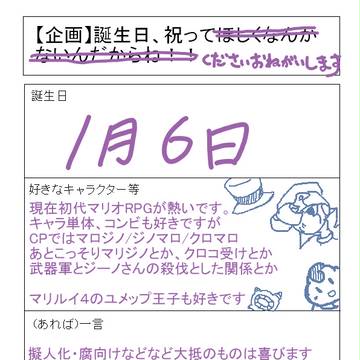 【企画】誕生日、祝ってほしくなんか
ないんだからね！！くださいおねがいします
誕生日
1月6日
好きなキャラクター等
現在初代マリオRPGが熱いです。
キャラ単体、コンビも好きですが
CPではマロジノ/ジノマロ/クロマロ
あとこっそりマリジノとか、クロコ受けとか
武器軍とジーノさんの殺伐とした関係とか
マリルイ4のユメップ王子も好きです
（あれば）一言
擬人化・腐向けなどなど大抵のものは喜びます